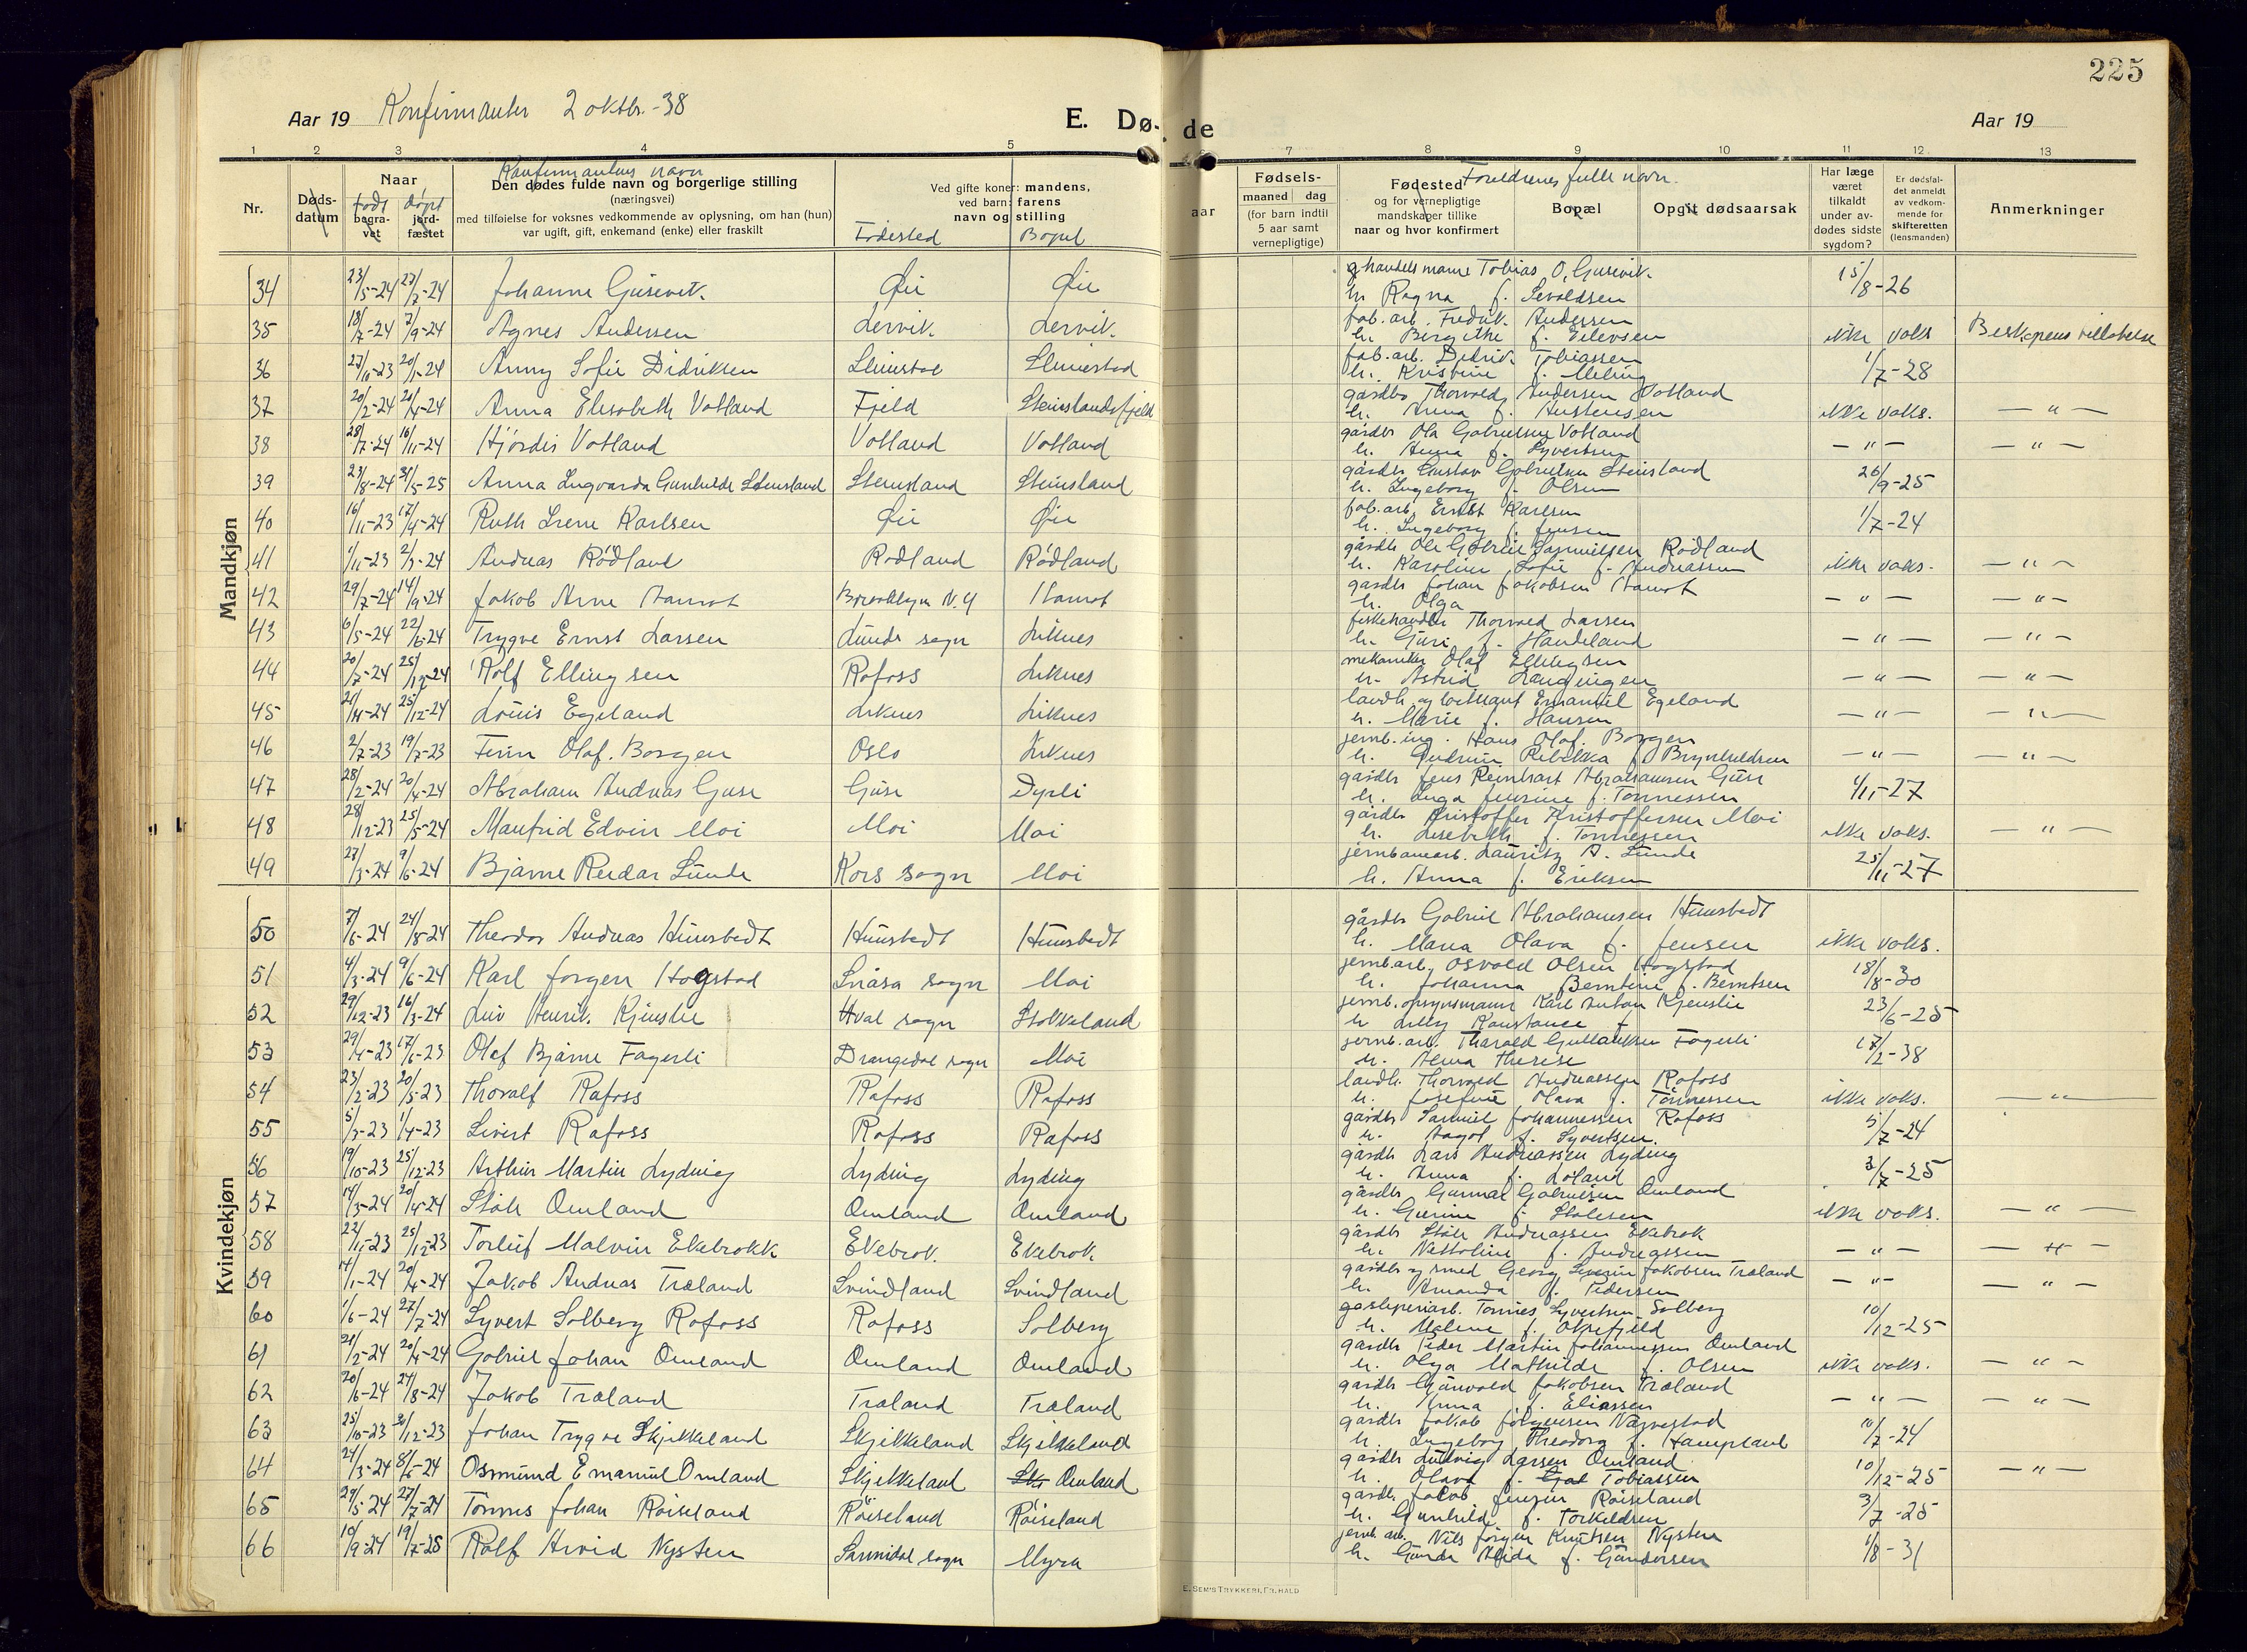 225
Aar 19 Konfirmanter 2 oktbr.-38
E. Dø- de
Aar 19
1 2 3 4 5 7 8 9 10 11 12 13
Nr.
Døds-datum
Naar
født begra-vet
døpt jord-fæstet
Konfirmantens navn
Den dødes fulde navn og borgerlige stilling
(næringsvei)
med tilføielse for voksnes vedkommende av oplysning, om han (hun)
var ugift, gift, enkemand (enke) eller fraskilt
Ved gifte koner: mandens,
ved barn: farens
navn og stilling
Fødested Bopel
aar
Fødsels-
maaned dag
(for barn indtil
5 aar samt
vernepligtige)
Foreldrenes fulle navn.
Fødested
og for vernepligtige
mandskaper tillike
naar og hvor konfirmert
Bopæl
Opgit dødsaarsak
Har læge
været
tilkaldt
under av-
dødes sidste
sygdom?
Er dødsfal-
det anmeldt
av vedkom-
mende for
skifteretten
(lensmanden)
Anmerkninger
Mandkjøn
34 23/5-24 27/7-24 Johanne Gusevik. Øie Øie handelsmann Tobias O. Gusevik. h. Ragna f. Sevaldsen 15/8-26
35 18/7-24 7/9-24 Agnes Andersen Lervik. Lervik. fab.arb. Fredrik Andersen h. Bergithe f. Eilevsen ikke vaks
36 27/10-23 20/1-24 Anny Sofie Didriksen fab.arb. Didrik Tobiassen h. Kristine f. Meling 1/7-28
37 20/2-24 20/4-24 Anna Elisabeth Votland Fjeld Steinslandsfjeld gårdbr Thorvald Andersen Votland h. Anna f. Austensen ikke vaks. — " —
38 28/7-24 16/11-24 Hjördis Votland Votland Votland gårdbr Ola Gabrielsen Votland h. Anna f. Syvertsen — " — — " —
39 23/8-24 31/5-25 Anna Ingvarda Gunhilde Steinsland Steinsland Steinsland gårdbr Gustav Gabrielsen Steinsland h. Ingeborg f. Olsen 26/9-25
40 16/11-23 17/4-24 Ruth Irene Karlsen Øie Øie fab.arb. Ernst Karlsen h. Ingeborg f. Jensen 1/7-24
41 1/11-23 2/3-24 Andreas Rödland Rødland Rödland gårdbr Ole Gabriel Samuelsen Rødland h. Karoline Sofie f. Andreassen ikke vaks. — " —
42 29/7-24 14/9-24 Jakob Arne Brooklyn N.Y gårdbr Johan Jakobsen h. Olga — " — — " —
43 6/5-24 22/6-24 Trygve Ernst Larsen Lunde sogn Liknes fiskehandler Thorvald Larsen h. Guri f. Handeland — " — — " —
44 20/7-24 25/12-24 Rolf Ellingsen Rafoss Liknes mekaniker Olaf Ellingsen h. Astrid — " — — " —
45 25/12-24 Louis Egeland Liknes Liknes Emanuel Egeland h. Marie f. Hansen — " — — " —
46 2/7-23 19/7-23 Finn Olaf. Borgen Oslo Liknes jernb.ing. Hans Olaf. Borgen h. Gudrun Rebekka f. Brynhildsen — " — — " —
47 28/2-24 20/4-24 Abraham Andreas Guse Guse Dyrli gårdbr Jens Reinhart Abrahamsen Guse h. Inga Jensine f. Tønnessen 4/11-27
48 28/12-23 25/5-24 Manfrid Edvin Moi Moi Moi gårdbr Kristoffer Kristoffersen Moi h. Lisebeth f. Tønnessen ikke vaks. — " —
49 27/3-24 9/6-24 Bjarne Reidar Lunde Kors sogn Moi Lauritz A. Lunde h. Anna f. Eriksen 25/11-27
Kvindekjøn
50 7/6-24 24/8-24 Theodor Andreas Hunsbedt Hunsbedt Hunsbedt gårdbr Gabriel Abrahamsen Hunsbedt h. Maria Olava f. Jensen ikke vaks.
51 4/3-24 9/6-24 Karl Jørgen Hogstad Snåsa sogn Moi jernb.arb. Osvald Olsen Hogstad h. Johanna Berntine f. Berntsen 18/8-30
52 29/12-23 16/3-24 Liv Henrik. Hval sogn Stokkeland jernb.opsynsmann Karl Anton h. Lilly Konstance f. 23/6-25
53 29/4-23 17/6-23 Olaf Bjarne Fagerli Drangedal sogn Moi jernb.arb. Harald Gullaksen Fagerli h. Alma Therese 17/2-38
54 23/2-23 20/5-23 Thoralf Rafoss Rafoss Rafoss landh. Thorvald Andreassen Rafoss h. Josefine Olava f. Tönnessen ikke vaks. — " —
55 5/3-23 1/4-23 Sivert Rafoss Rafoss Rafoss gårdbr Samuel Johannessen Rafoss h. Aagot f. Syvertsen. 5/7-24
56 19/10-23 25/12-23 Arthur Martin Lyding Lyding Lyding gårdbr Lars Andreassen Lyding h. Anna f. Loland 3/7-25
57 14/3-24 20/4-24 Ståle Omland Omland Omland gårdbr Gunnar Gabrielsen Omland h. Gurine f. Stalesen ikke vaks. — " —
58 22/11-23 25/12-23 Torleif Malvin Ekebrokk Ekebrok. Ekebrok gårdbr Ståle Andreassen Ekebrok h. Nettoline f. Andreassen — " — — " —
59 14/1-24 20/4-24 Jakob Andreas Træland Svindland Svindland gårdbr og smed Georg Severin Jakobsen Træland h. Amanda f. Pedersen — " — — " —
60 1/6-24 27/7-24 Syvert Solberg Rafoss Rafoss Solberg Tønnes Syvertsen Solberg h. Malene f. 10/12-25
61 21/2-24 20/4-24 Gabriel Johan Omland Omland Omland gårdbr Peder Martin Johannessen Omland h. Olga Mathilde f. Olsen ikke vaks. — " —
62 20/6-24 24/8-24 Jakob Træland Træland Træland gårdbr Gunvald Jakobsen Træland h. Anna f. Eliassen — " — — " —
63 25/10-23 30/12-23 Johan Trygve Skjekkeland Skjekkeland Skjekkeland gårdbr Jakob Jørgensen h. Ingeborg Theodora f. 10/7-24
64 24/3-24 8/6-24 Osmund Emanuel Omland Skjekkeland Sk Omland gårdbr Ludvig Larsen Omland h. Olava f. Tobiassen 10/12-25 — " —
65 29/5-24 27/7-24 Tönnes Johan Röiseland Röiseland Röiseland gårdb. Jakob Jensen Röiseland h. Gunhilde f. Torkeldsen 3/7-25
66 19/9-24 19/7-25 Rolf Arvid Nysten Sannidal sogn Myra jernb.arb. Nils Jørgen Knutsen Nysten h. Gunda Alfida f. Gundersen 1/8-31
E. SEM'S TRYKKERI, FR. HALD